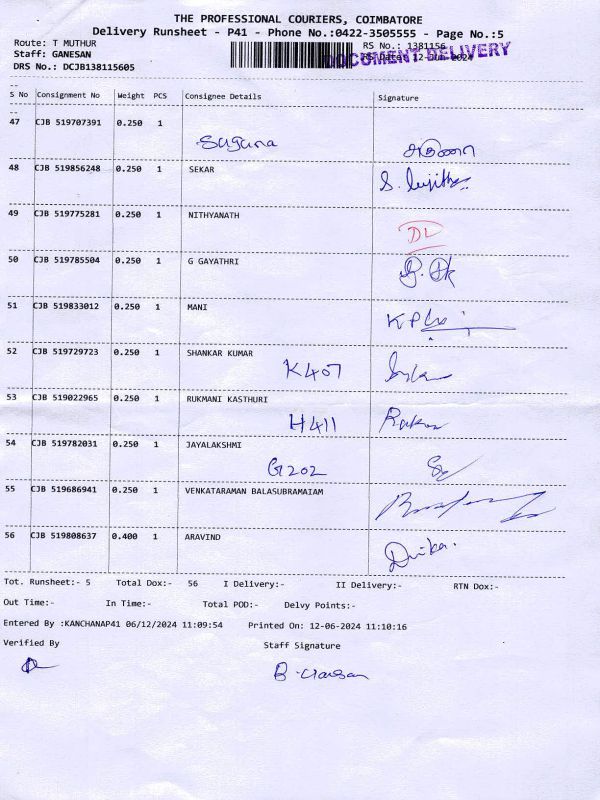 THE PROFESSIONAL COURIERS, COIMBATORE
Delivery Runsheet - P41 - Phone No.:0422-3505555 - Page No.:5
Route: T MUTHUR RS No.: 1381156
Staff: GANESAN RS Date: 12-Jun-2024
DOCUMENT DELIVERY
DRS No.: DCJB138115605
--
S No Consignment No Weight PCS Consignee Details Signature
--
47 CJB 519707391 0.250 1
Suguna
48 CJB 519856248 0.250 1 SEKAR
49 CJB 519775281 0.250 1 NITHYANATH
DL
50 CJB 519785504 0.250 1 G GAYATHRI
51 CJB 519833012 0.250 1 MANI
52 CJB 519729723 0.250 1 SHANKAR KUMAR
K407
53 CJB 519022965 0.250 1 RUKMANI KASTHURI
H411
54 CJB 519782031 0.250 1 JAYALAKSHMI
G202
55 CJB 519686941 0.250 1 VENKATARAMAN BALASUBRAMAIAM
56 CJB 519808637 0.400 1 ARAVIND
Tot. Runsheet:- 5 Total Dox:- 56 I Delivery:- II Delivery:- RTN Dox:-
Out Time:- In Time:- Total POD:- Delvy Points:-
Entered By :KANCHANAP41 06/12/2024 11:09:54 Printed On: 12-06-2024 11:10:16
Verified By Staff Signature